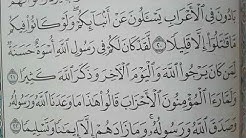 بَادُونَ فِى ٱلْأَعْرَابِ يَسْـَٔلُونَ عَنْ أَنۢبَآئِكُمْ ۖ وَلَوْ كَانُوا۟ فِيكُم
مَّا قَـٰتَلُوٓا۟ إِلَّا قَلِيلًا ٢٠ لَّقَدْ كَانَ لَكُمْ فِى رَسُولِ ٱللَّهِ أُسْوَةٌ حَسَنَةٌ
لِّمَن كَانَ يَرْجُوا۟ ٱللَّهَ وَٱلْيَوْمَ ٱلْـَٔاخِرَ وَذَكَرَ ٱللَّهَ كَثِيرًا ٢١
وَلَمَّا رَءَا ٱلْمُؤْمِنُونَ ٱلْأَحْزَابَ قَالُوا۟ هَـٰذَا مَا وَعَدَنَا ٱللَّهُ وَرَسُولُهُۥ
وَصَدَقَ ٱللَّهُ وَرَسُولُهُۥ ۚ وَمَا زَادَهُمْ إِلَّآ إِيمَـٰنًا وَتَسْلِيمًا ٢٢